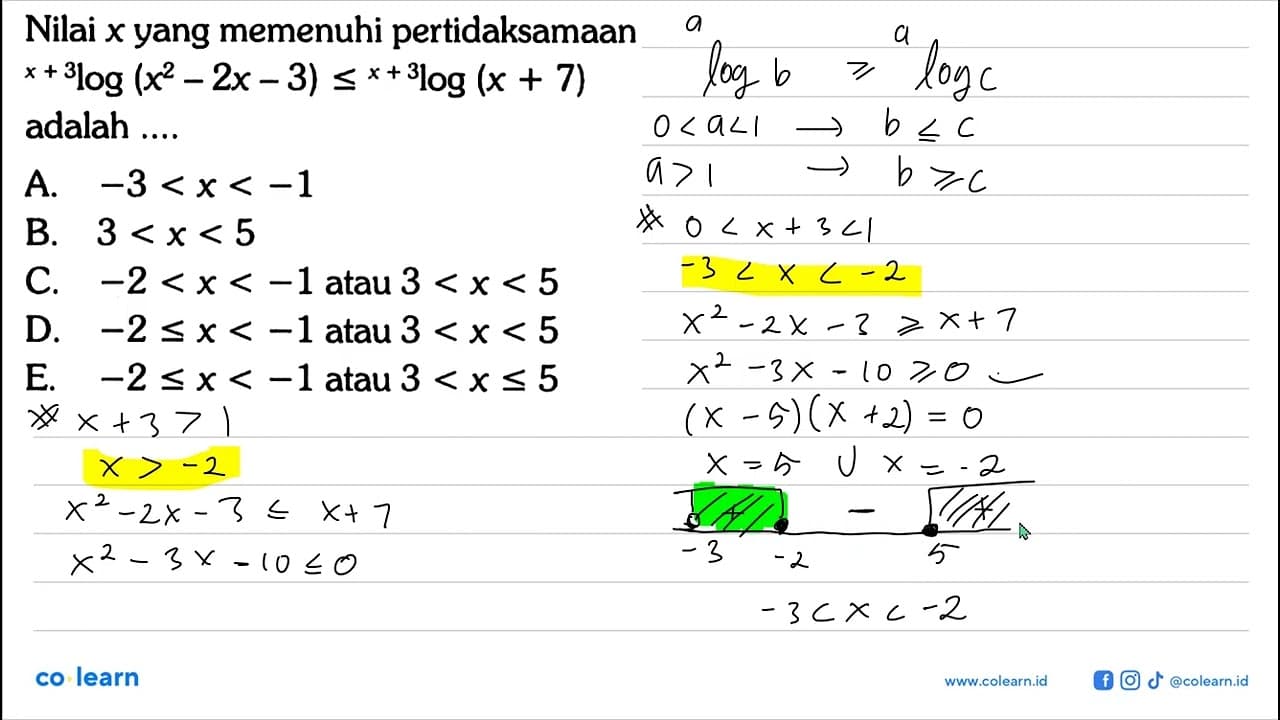 Nilai x yang memenuhi pertidaksamaan
ˣ⁺³log (x² – 2x – 3) ≤ ˣ⁺³log (x + 7)
adalah ....
A. –3 < x < –1
B. 3 < x < 5
C. –2 < x < –1 atau 3 < x < 5
D. –2 ≤ x < –1 atau 3 < x < 5
E. –2 ≤ x < –1 atau 3 < x ≤ 5
ᵃlog b ≥ ᵃlog c
0 < a < 1 → b ≤ c
a > 1 → b ≥ c
* 0 < x + 3 < 1
-3 < x < -2
x² - 2x - 3 ≥ x + 7
x² - 3x - 10 ≥ 0
(x - 5)(x + 2) = 0
x = 5 U x = -2
+ - +
-3 -2 5
-3 < x < -2
* x + 3 > 1
x > -2
x² - 2x - 3 ≤ x + 7
x² - 3x - 10 ≤ 0
co learn
www.colearn.id
@colearn.id